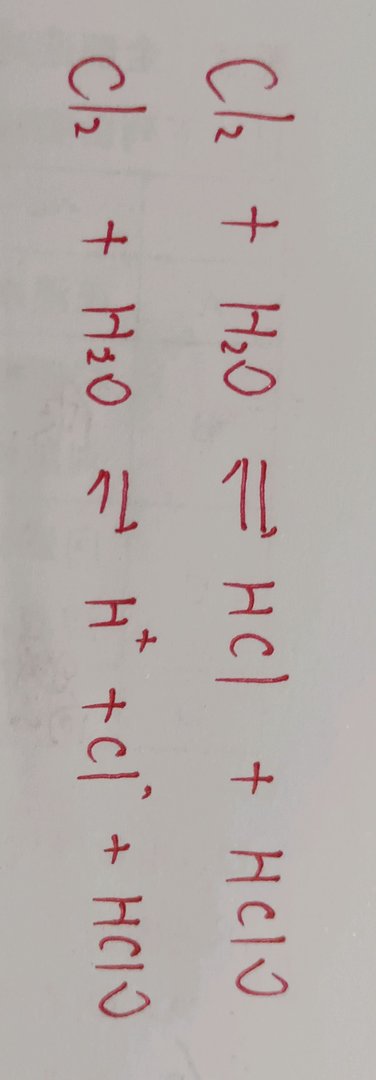 Cl₂ + H₂O ⇌ HCl + HClO
Cl₂ + H₂O ⇌ H⁺ + Cl⁻ + HClO